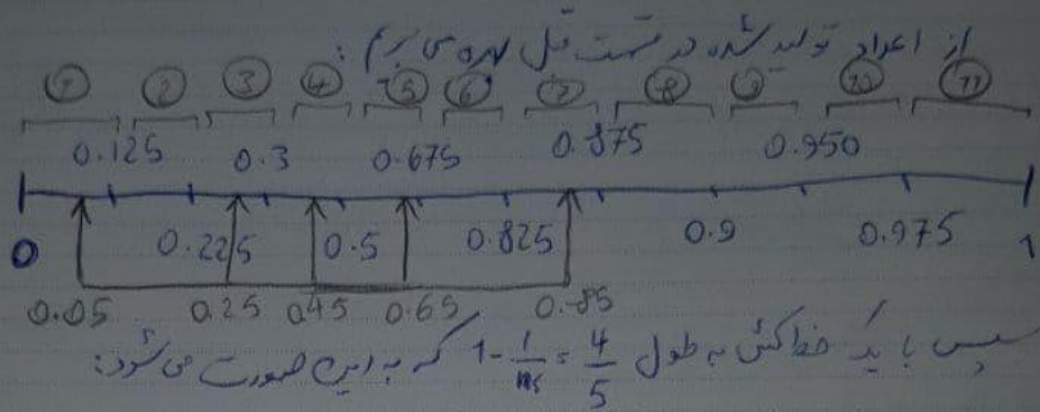 از اعداد تولید شده در قسمت قبل بهره می بریم :
① ② ③ ④ ⑤ ⑥ ⑦ ⑧ ⑨ ⑩ ⑪
0.125 0.3 0.675 0.875 0.950
0 0.225 0.5 0.825 0.9 0.975 1
0.05 0.25 0.45 0.65 0.85
سپس با یک خط کش به طول 1-1/m = 4/5 که به این صورت می شود: